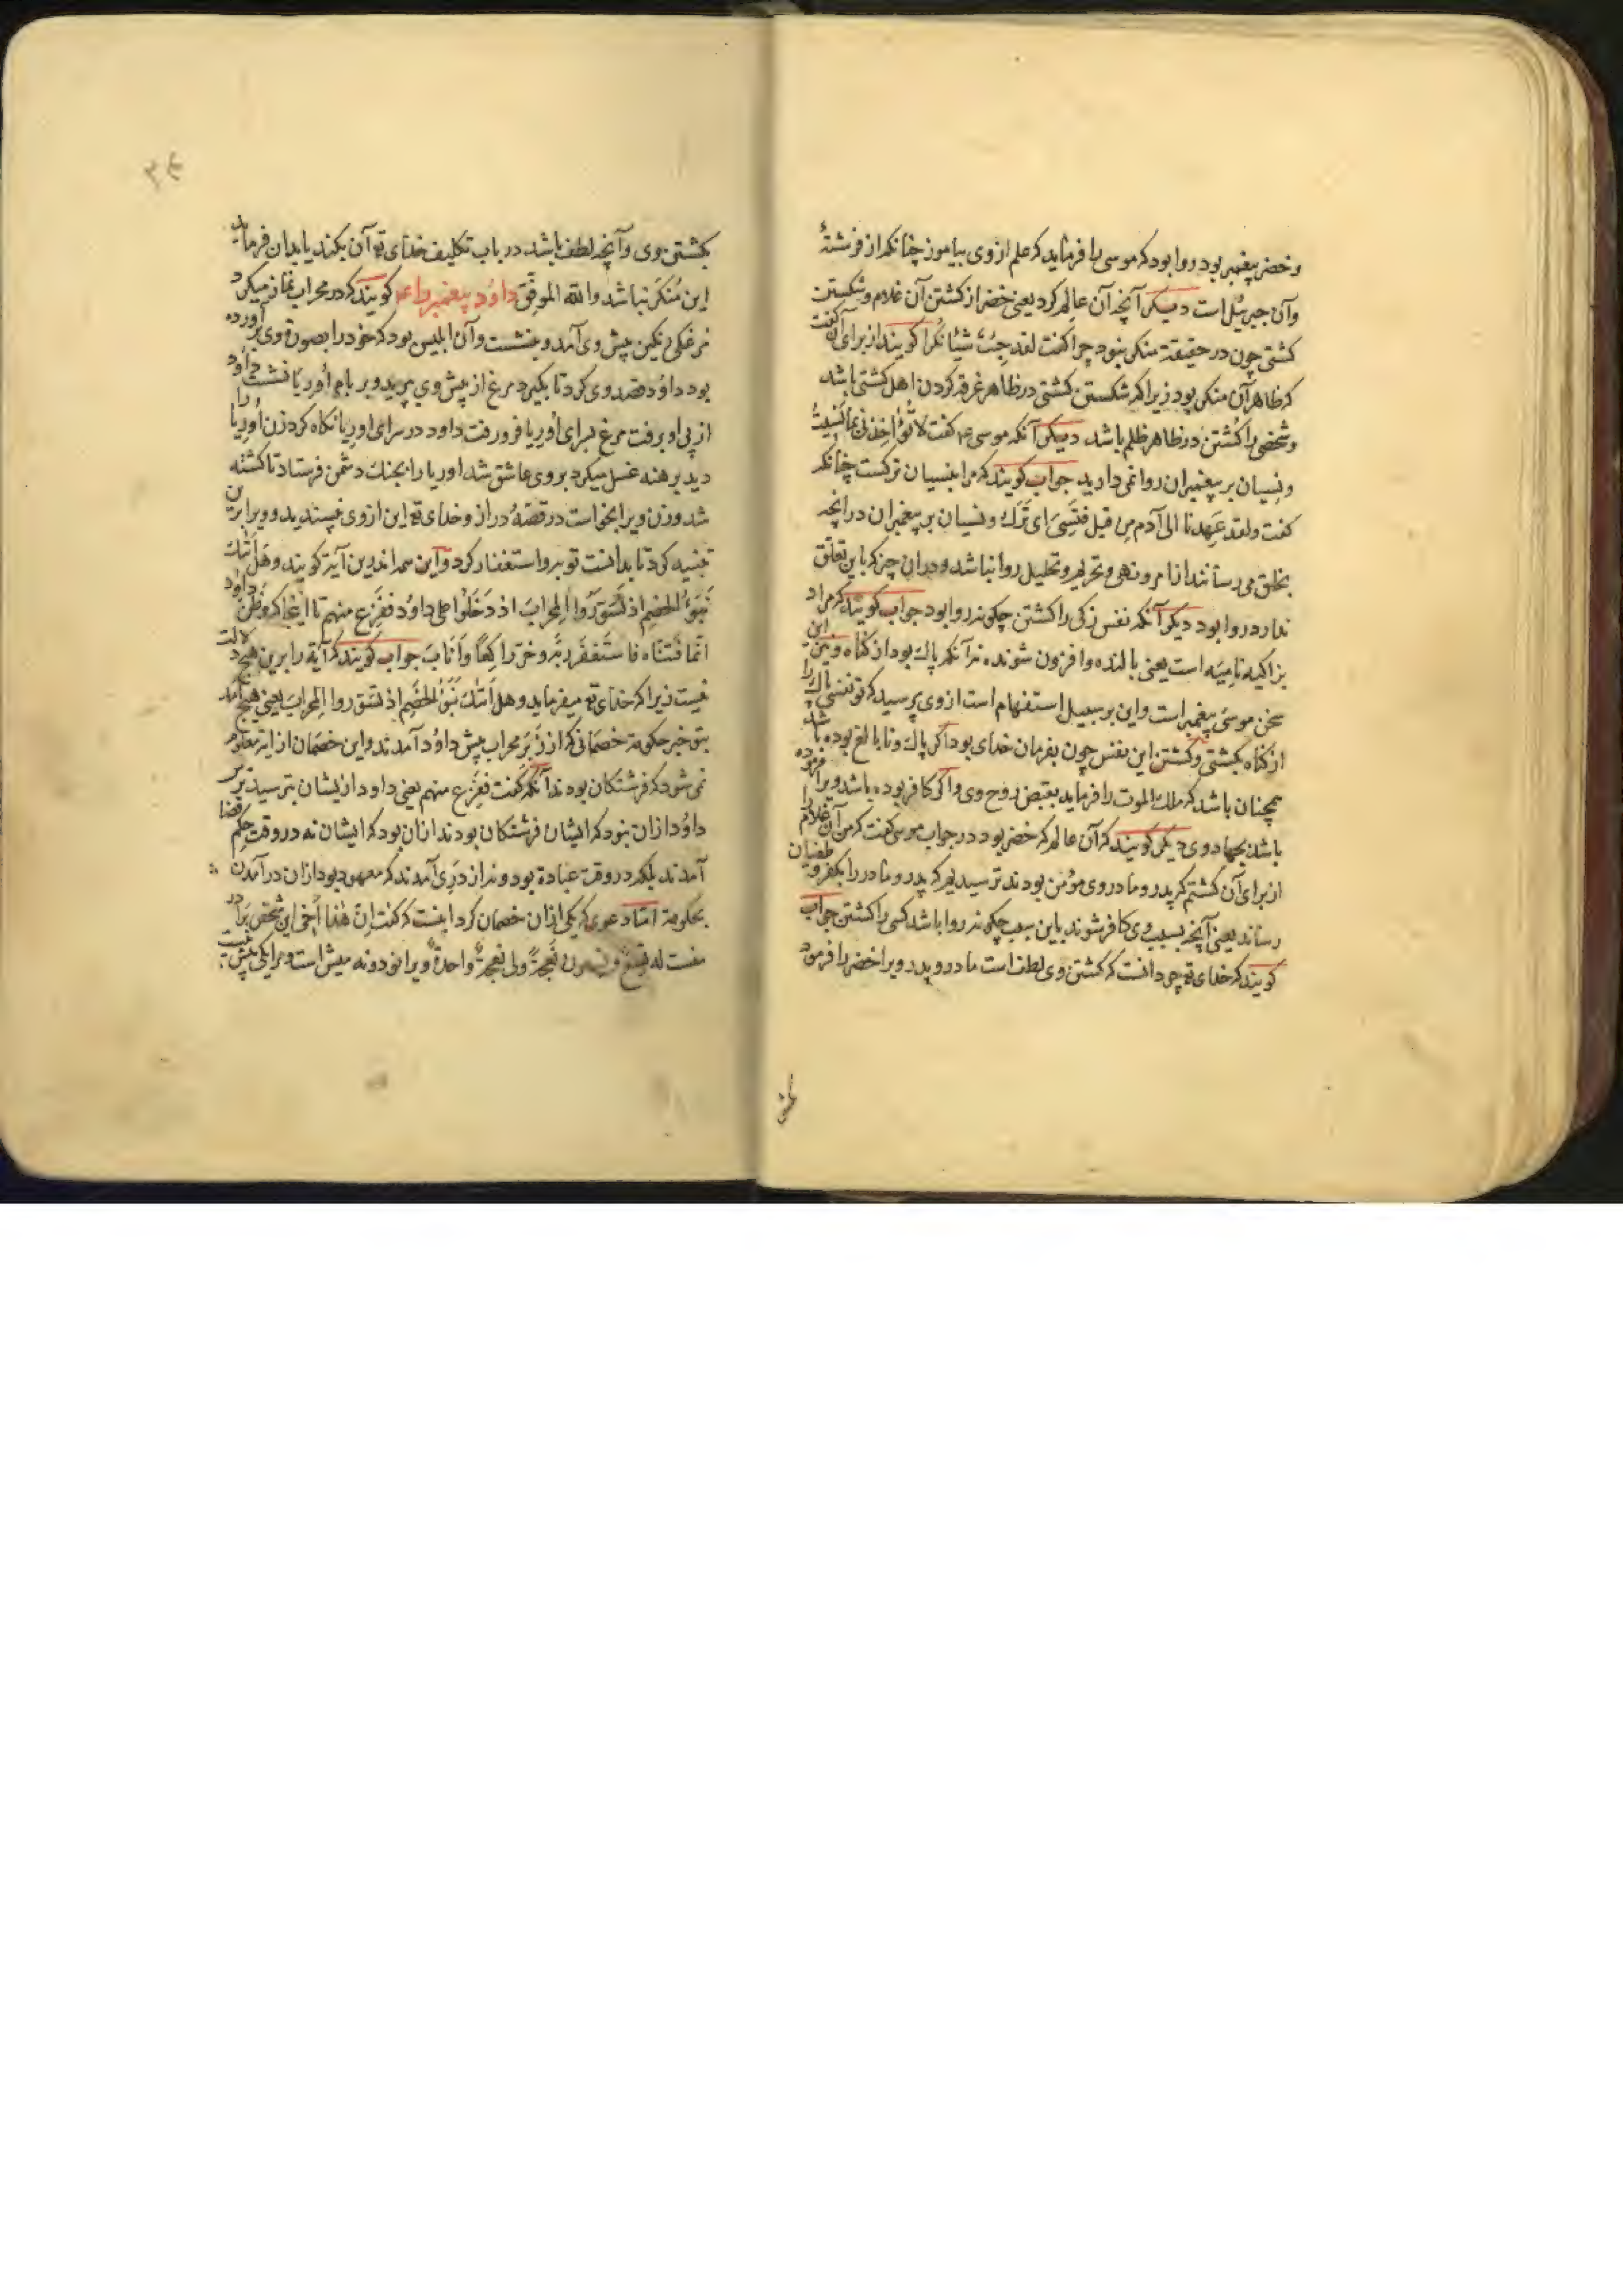 و خضر پیغمبر بود روا بود که موسی را فرماید که علم از وی بیاموز چنانکه از فرشتهٔ
و آن جبرئیل است دیگر آنچه آن عالم کرد یعنی خضر از کشتن آن غلام و شکستن
کشتی چون در حقیقة منکر نبود چرا گفت لقد جئت شیئا نکرا گویند از برای آن گفت
که ظاهر آن منکر بود زیرا که شکستن کشتی در ظاهر غرقه کردن اهل کشتی باشد
و شخصی را کشتن در ظاهر ظلم باشد دیگر آنکه موسی عم گفت لا تُؤاخِذنی بما نَسیتُ
و نسیان بر پیغمبران روا نمی دارید جواب گویند که مراد بنسیان ترکست چنانکه
گفت ولقد عَهِدنا الی آدم مِن قبل فنَسِیَ ای تَرَک و نسیان بر پیغمبران در آنچه
بخلق می رسانند از امر و نهی و تحریم و تحلیل روا نباشد و در آن چیز که باین تعلق
ندارد روا بود دیگر آنکه نفس زکی را کشتن چگونه روا بود جواب گویند که مراد
بزاکیه نامِیَه است یعنی بالنده و افزون شونده نه آنکه پاک بود از گناه و نیز این
سخن موسی پیغمبر است و این بر سبیل استفهام است از وی پرسید که تو نفسی پاک را
از گناه بکشتی و کشتن این نفس چون بفرمان خدای بود اگر پاک و نابالغ بوده باشد
همچنان باشد که ملک الموت را فرماید بقبض روح وی و اگر کافر بوده باشد ویرا فرموده
باشد بجهاد وی دیگر گویند که آن عالم که خضر بود در جواب موسی گفت که من آن غلام را
از برای آن کشتم که پدر و مادر وی مؤمن بودند ترسیدیم که پدر و مادر را بکفر و طغیان
رساند یعنی آنچه بسبب وی کافر شوند باین سبب چگونه روا باشد کسی را کشتن جواب
گویند که خدای تع چو دانست که کشتن وی لطف است مادر و پدر ویرا خضر را فرمود
بکشتن وی و آنچه لطف باشد در باب تکلیف خدای تع آن بکند یا بدان فرماید
این مُنکَر نباشد والله الموفِّق داوُد پیغمبر را عم گویند که در محراب نماز میکرد
مرغکی نیکو پیش وی آمد و بنشست و آن ابلیس بود که خود را بصورة وی برآورده
بود داوُد قصد وی کرد تا بگیرد مرغ از پیش وی پرید و بر بام اُورِیّا نشست داود
از پی او برفت مرغ بسرای اُورِیا فرو رفت داود در سرای اورِیا نگاه کرد زن اُورِیا را
دید برهنه غسل میکرد بر وی عاشق شد اوریا را بجنگ دشمن فرستاد تا کشته
شد و زن ویرا بخواست در قصّهٔ دراز و خدای تع این از وی نپسندید و ویرا برین
تنبیه کرد تا بدانست توبه و استغفار کرد و این همه اندرین آیة گویند و هَل اَتٰک
نَبَؤُ الخصم اذ تَسَوَّرُوا المِحرابَ اذ دَخَلُوا علی داوُد ففَزِعَ منهم تا اینجا که و ظَنَّ داوُد
انّما فَتنّاه فاستَغفَرَ ربَّه وخَرَّ راکِعاً وَاَنابَ جواب گویند که آیة را برین هیچ دلالت
نیست زیرا که خدای تع میفرماید و هل اَتٰک نَبَؤُ الخَصم اذ تسوّروا المِحرابَ یعنی هیچ آمد
بتو خبر حکومة خصمانی که از زَبَر محراب پیش داوُد آمدند و این خصمان از آیة معلوم
نمی شود که فرشتگان بودند آنکه گفت ففَزِعَ منهم یعنی داود از یشان بترسید ترس
داوُد از آن نبود که ایشان فرشتگان بودند از آن بود که ایشان نه در وقت حکم و قضا
آمدند بلکه در وقت عبادة بود و نه از دری آمدند که معهود بود از آن در آمدن
بحکومة امّا دعوی که یکی از آن خصمان کرد اینست که گفت اِنّ هٰذا اَخی این شخص برادر
منست له تِسعٌ وتسعون نَعجةً ولی نعجةٌ واحدةٌ ویرا نود و نه میش است و مرا یکی میش نیست